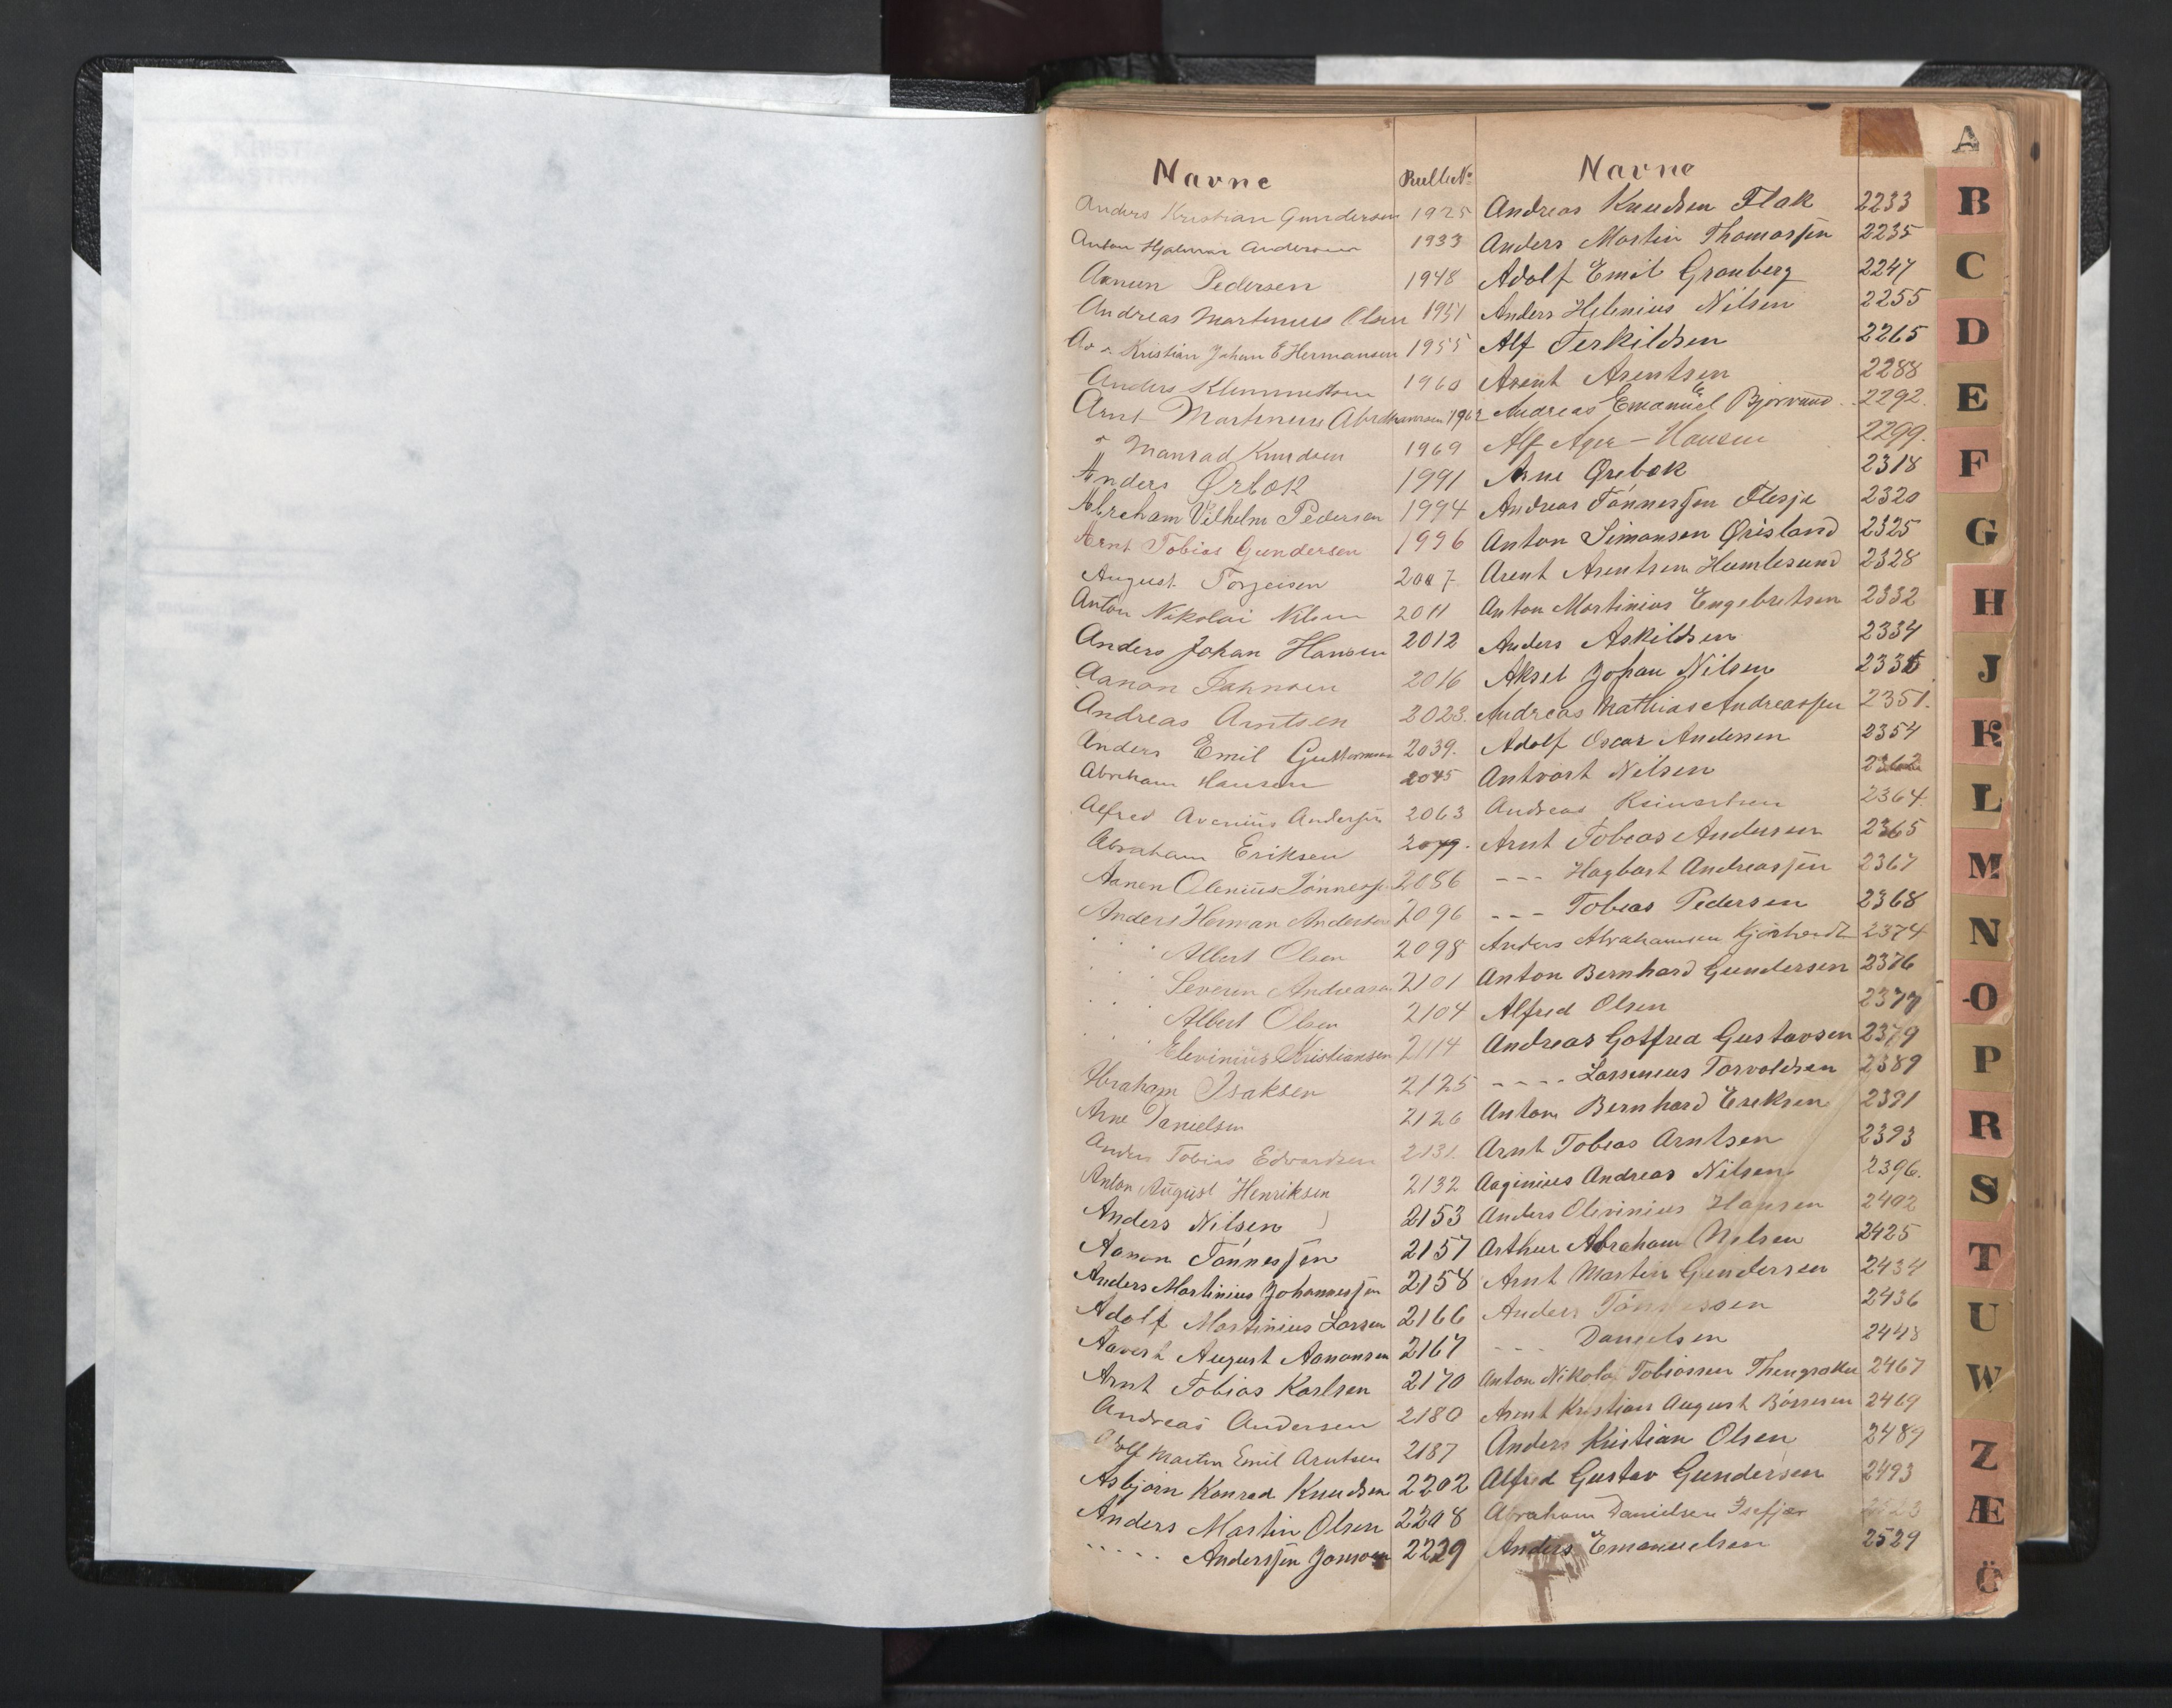 Navne
Rulle No
Anders Kristian Gundersen 1925
Anton Hjalmar Andersen 1933
Aanen Pedersen 1948
Andreas Martinius Olsen 1951
Kristian Johan E Hermansen 1955
Anders Klemmetsen 1960
Arnt Martinius Abrahamsen 1962
" Manrad Knudsen 1969
Anders Ørbok 1991
Abraham Vilhelm Pedersen 1994
Arnt Tobias Gundersen 1996
August Torgersen 2007
Anton Nikolai Nilsen 2011
Anders Johan Hansen 2012
Aanon Jahnsen 2016
Andreas Arntsen 2023.
Anders Emil Guttormsen 2039.
Abraham Hansen 2045
Alfred Avenius Anderssen 2063
Abraham Eriksen 2079.
Aanen Olenius Tønness. 2086
Anders Herman Andersen 2096
" " " Albert Olsen 2098
" " " Severin Andreasen 2101
" " " Albert Olsen 2104
" " " Elevinius Kristiansen 2114
Abraham Isaksen 2125
Arne Danielsen 2126
Anders Tobias Edvardsen 2131
Anton August Henriksen 2132
Anders Nilsen 2153
Aanon Tønnessen 2157
Anders Martinius Johannessen 2158
Adolf Martinius Larsen 2166
Aavert August Aanonsen 2167
Arnt Tobias Karlsen 2170
Andreas Andersen 2180
Adolf Martin Emil Arntsen 2187
Asbjørn Konrad Knudsen 2202
Anders Martin Olsen 2208
- - - - - Anderssen Jonsson 2229
Navne
Andreas Knudsen Flak 2233
Anders Martin Thomassen 2235
Adolf Emil Granberg 2247
Anders Helenius Nilsen 2255
Alf Terkildsen 2265
Arent Arentsen 2288
Andreas Emanuel Bjorvand 2292.
Alf Ager-Hansen 2299.
Arne Ørebek 2318
Andreas Tønnessen Flesje 2320
Anton Simonsen Ørisland 2325
Arent Arentsen Humlesund 2328
Anton Martinius Engebretsen 2332
Anders Askildsen 2334
Aksel Johan Nilsen 2335
Andreas Mathias Andreassen 2351.
Adolf Oscar Andersen 2354
Antvart Nilsen 2362
Andreas Reinertsen 2364.
Arnt Tobias Andersen 2365
- - - Hagbart Andreassen 2367
- - - Tobias Pedersen 2368
Anders Abrahamsen 2374
Anton Bernhard Gundersen 2376
Alfred Olsen 2377
Andreas Gotfred Gustavsen 2379
- - - - Larsenius Torvaldsen 2389
Anton Bernhard Eriksen 2391
Arnt Tobias Arntsen 2393
Aaginius Andreas Nilsen 2396.
Anders Olivinius Hansen 2402
Arthur Abraham Nilsen 2425
Arnt Martin Gundersen 2434
Anders Tønnessen 2436
- - - Danielsen 2448
Anton Nikolai Tobiassen 2467
Arent Kristian August Børresen 2469
Anders Kristian Olsen 2489
Alfred Gustav Gundersen 2493
Abraham Danielsen Isefjær
Anders Emanuelsen 2529
A
B
C
D
E
F
G
H
J
K
L
M
N
O
P
R
S
T
U
W
Z
Æ
Ö